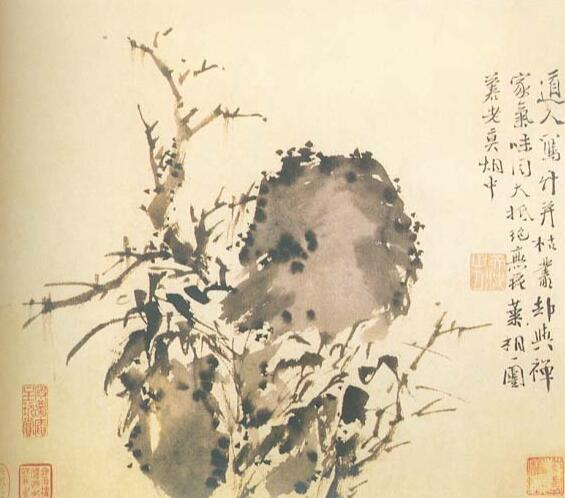 道人寫竹并枯叢却與禪
家氣味同大抵絕無花葉相一團
蒼老莫烟中